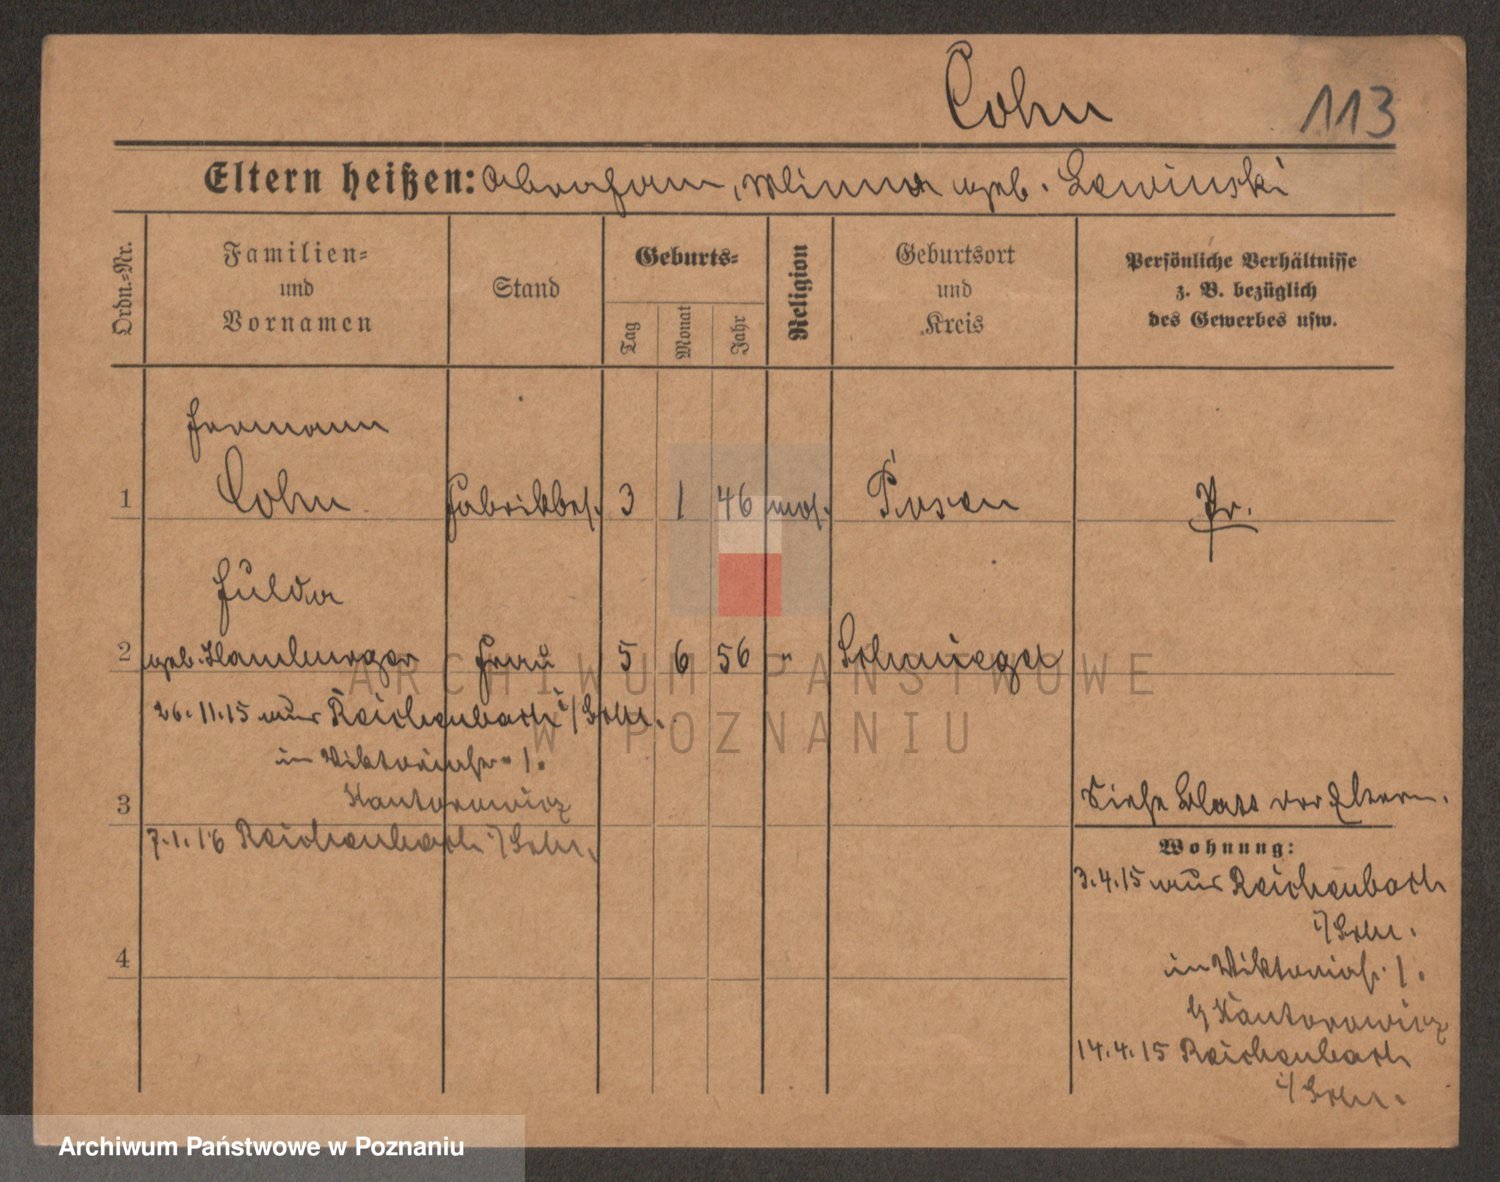 Cohn 113
Eltern heißen: Abraham, Minna geb. Lewinski
Ordn.-Nr.
Familien-
und
Vornamen
Stand
Geburts-
Tag
Monat
Jahr
Religion
Geburtsort
und
Kreis
Persönliche Verhältnisse
z. B. bezüglich
des Gewerbes usw.
Hermann
1 Cohn Fabrikbes. 3 1 46 mos. Posen Pr.
Hulda
2 geb. Hamburger Frau 5 6 56 " Schmiegel
26.11.15 aus Reichenbach i/Schl.
in Viktoriastr. 1.
Kantorowicz
3
7.1.16 Reichenbach i/Schl.
Siehe Blatt der Eltern.
Wohnung:
3.4.15 aus Reichenbach
i/Schl.
in Viktoriast. 1.
b/ Kantorowicz
14.4.15 Reichenbach
i/Schl.
4
ARCHIWUM PAŃSTWOWE
W POZNANIU
Archiwum Państwowe w Poznaniu